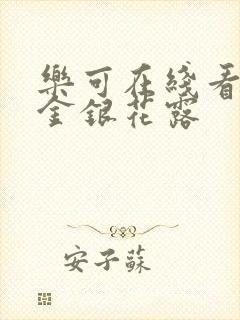 樂可在綫看
金銀花露
安子蘇